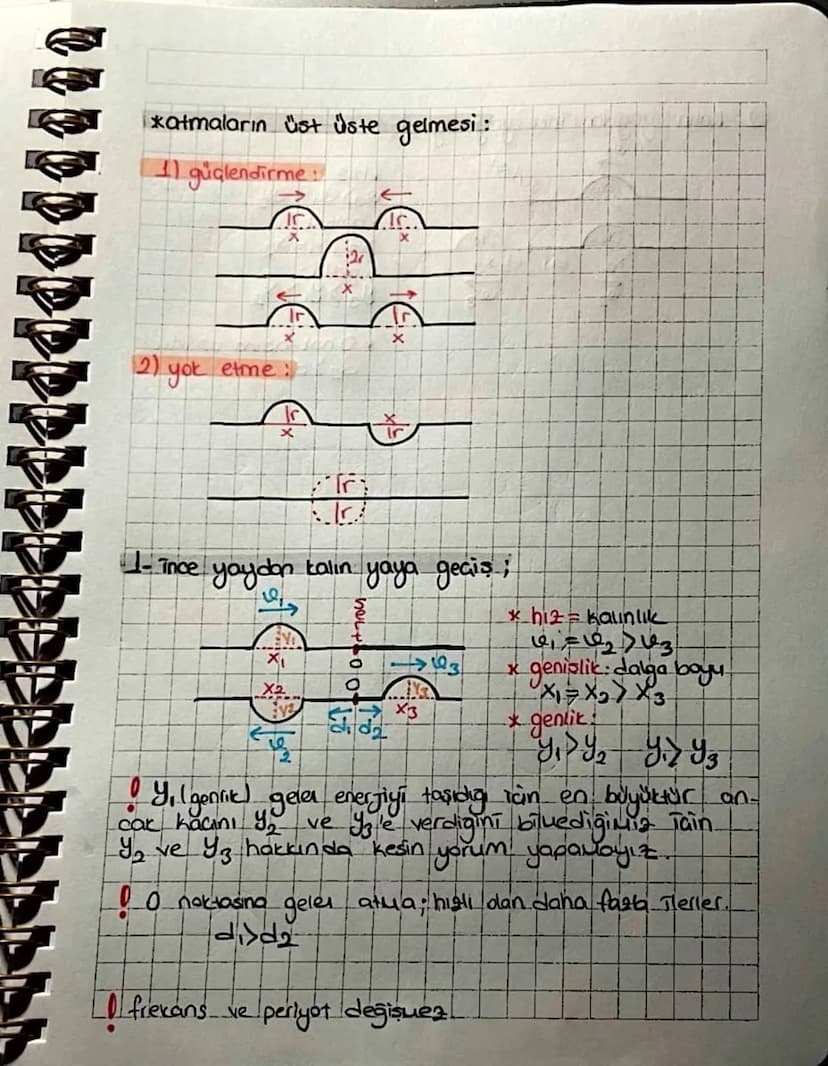 *atmaların üst üste gelmesi:
1) güçlendirme:
→ ←
1r 1r
x x
2r
x
← →
1r 1r
x x
2) yok etme:
1r x
x 1r
1r
1r
1- ince yaydan kalın yaya geçiş;
𝜗1 → sert
y1
x1 O → 𝜗3
x2 O y3
y2 x3
← 𝜗2 d1 d2
* hız = kalınlık
𝜗1 = 𝜗2 > 𝜗3
* genişlik: dalga boyu
x1 = x2 > x3
* genlik:
y1>y2 y1>y3
! y1 (genlik) gelen enerjiyi taşıdığı için en büyüktür an-
cak kaçını y2 ve y3'e verdiğini bilmediğimiz için
y2 ve y3 hakkında kesin yorum yapamayız.
! O noktasına gelen atma; hızlı olan daha fazla ilerler.
d1>d2
! frekans ve periyot değişmez